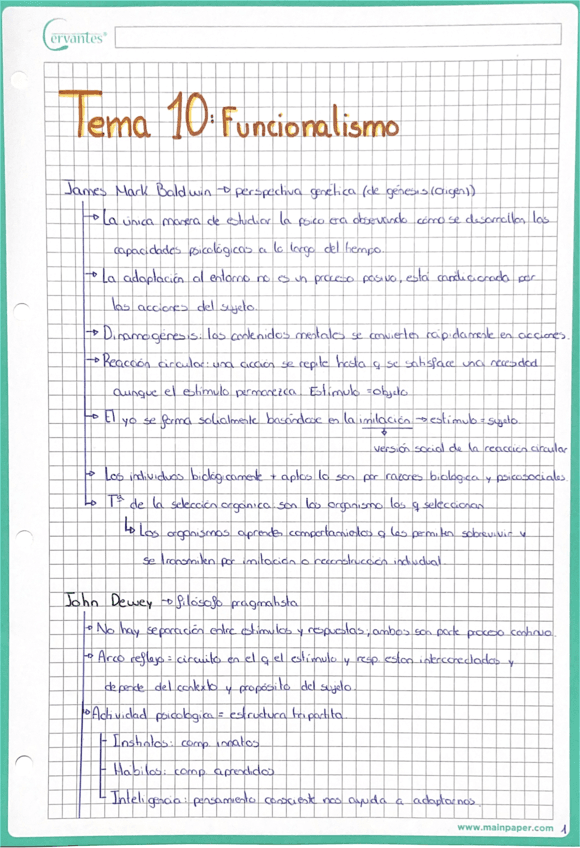 Cervantes®
Tema 10: Funcionalismo
James Mark Baldwin → perspectiva genética (de génesis (origen))
→ La única manera de estudiar la psico era observando cómo se desarrollan las
capacidades psicológicas a lo largo del tiempo.
→ La adaptación al entorno no es un proceso pasivo, está condicionada por
las acciones del sujeto.
→ Dinamogénesis: los contenidos mentales se convierten rápidamente en acciones.
→ Reacción circular: una acción se repite hasta q se satisface una necesidad
aunque el estímulo permanezca. Estímulo = objeto
→ El yo se forma socialmente basándose en la imitación → estímulo = sujeto
versión social de la reacción circular
→ Los individuos biológicamente + aptos lo son por razones biológica y psicosociales.
↳ Tª de la selección orgánica son los organismos los q seleccionan
↳ Los organismos aprenden comportamientos q les permiten sobrevivir y
se transmiten por imitación o reconstrucción individual.
John Dewey → filósofo pragmatista
→ No hay separación entre estímulos y respuestas, ambos son parte proceso continuo.
→ Arco reflejo = circuito en el q el estímulo y resp. están intercorelados y
depende del contexto y propósito del sujeto.
→ Actividad psicológica = estructura tripartita.
Instintos: comp innatos
Hábitos: comp aprendidos
Inteligencia: pensamiento consciente nos ayuda a adaptarnos.
www.mainpaper.com 1